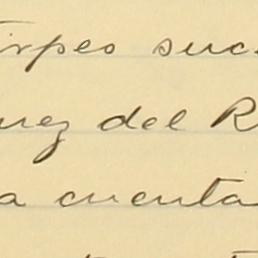 irpes suc
uez del R
a cuenta